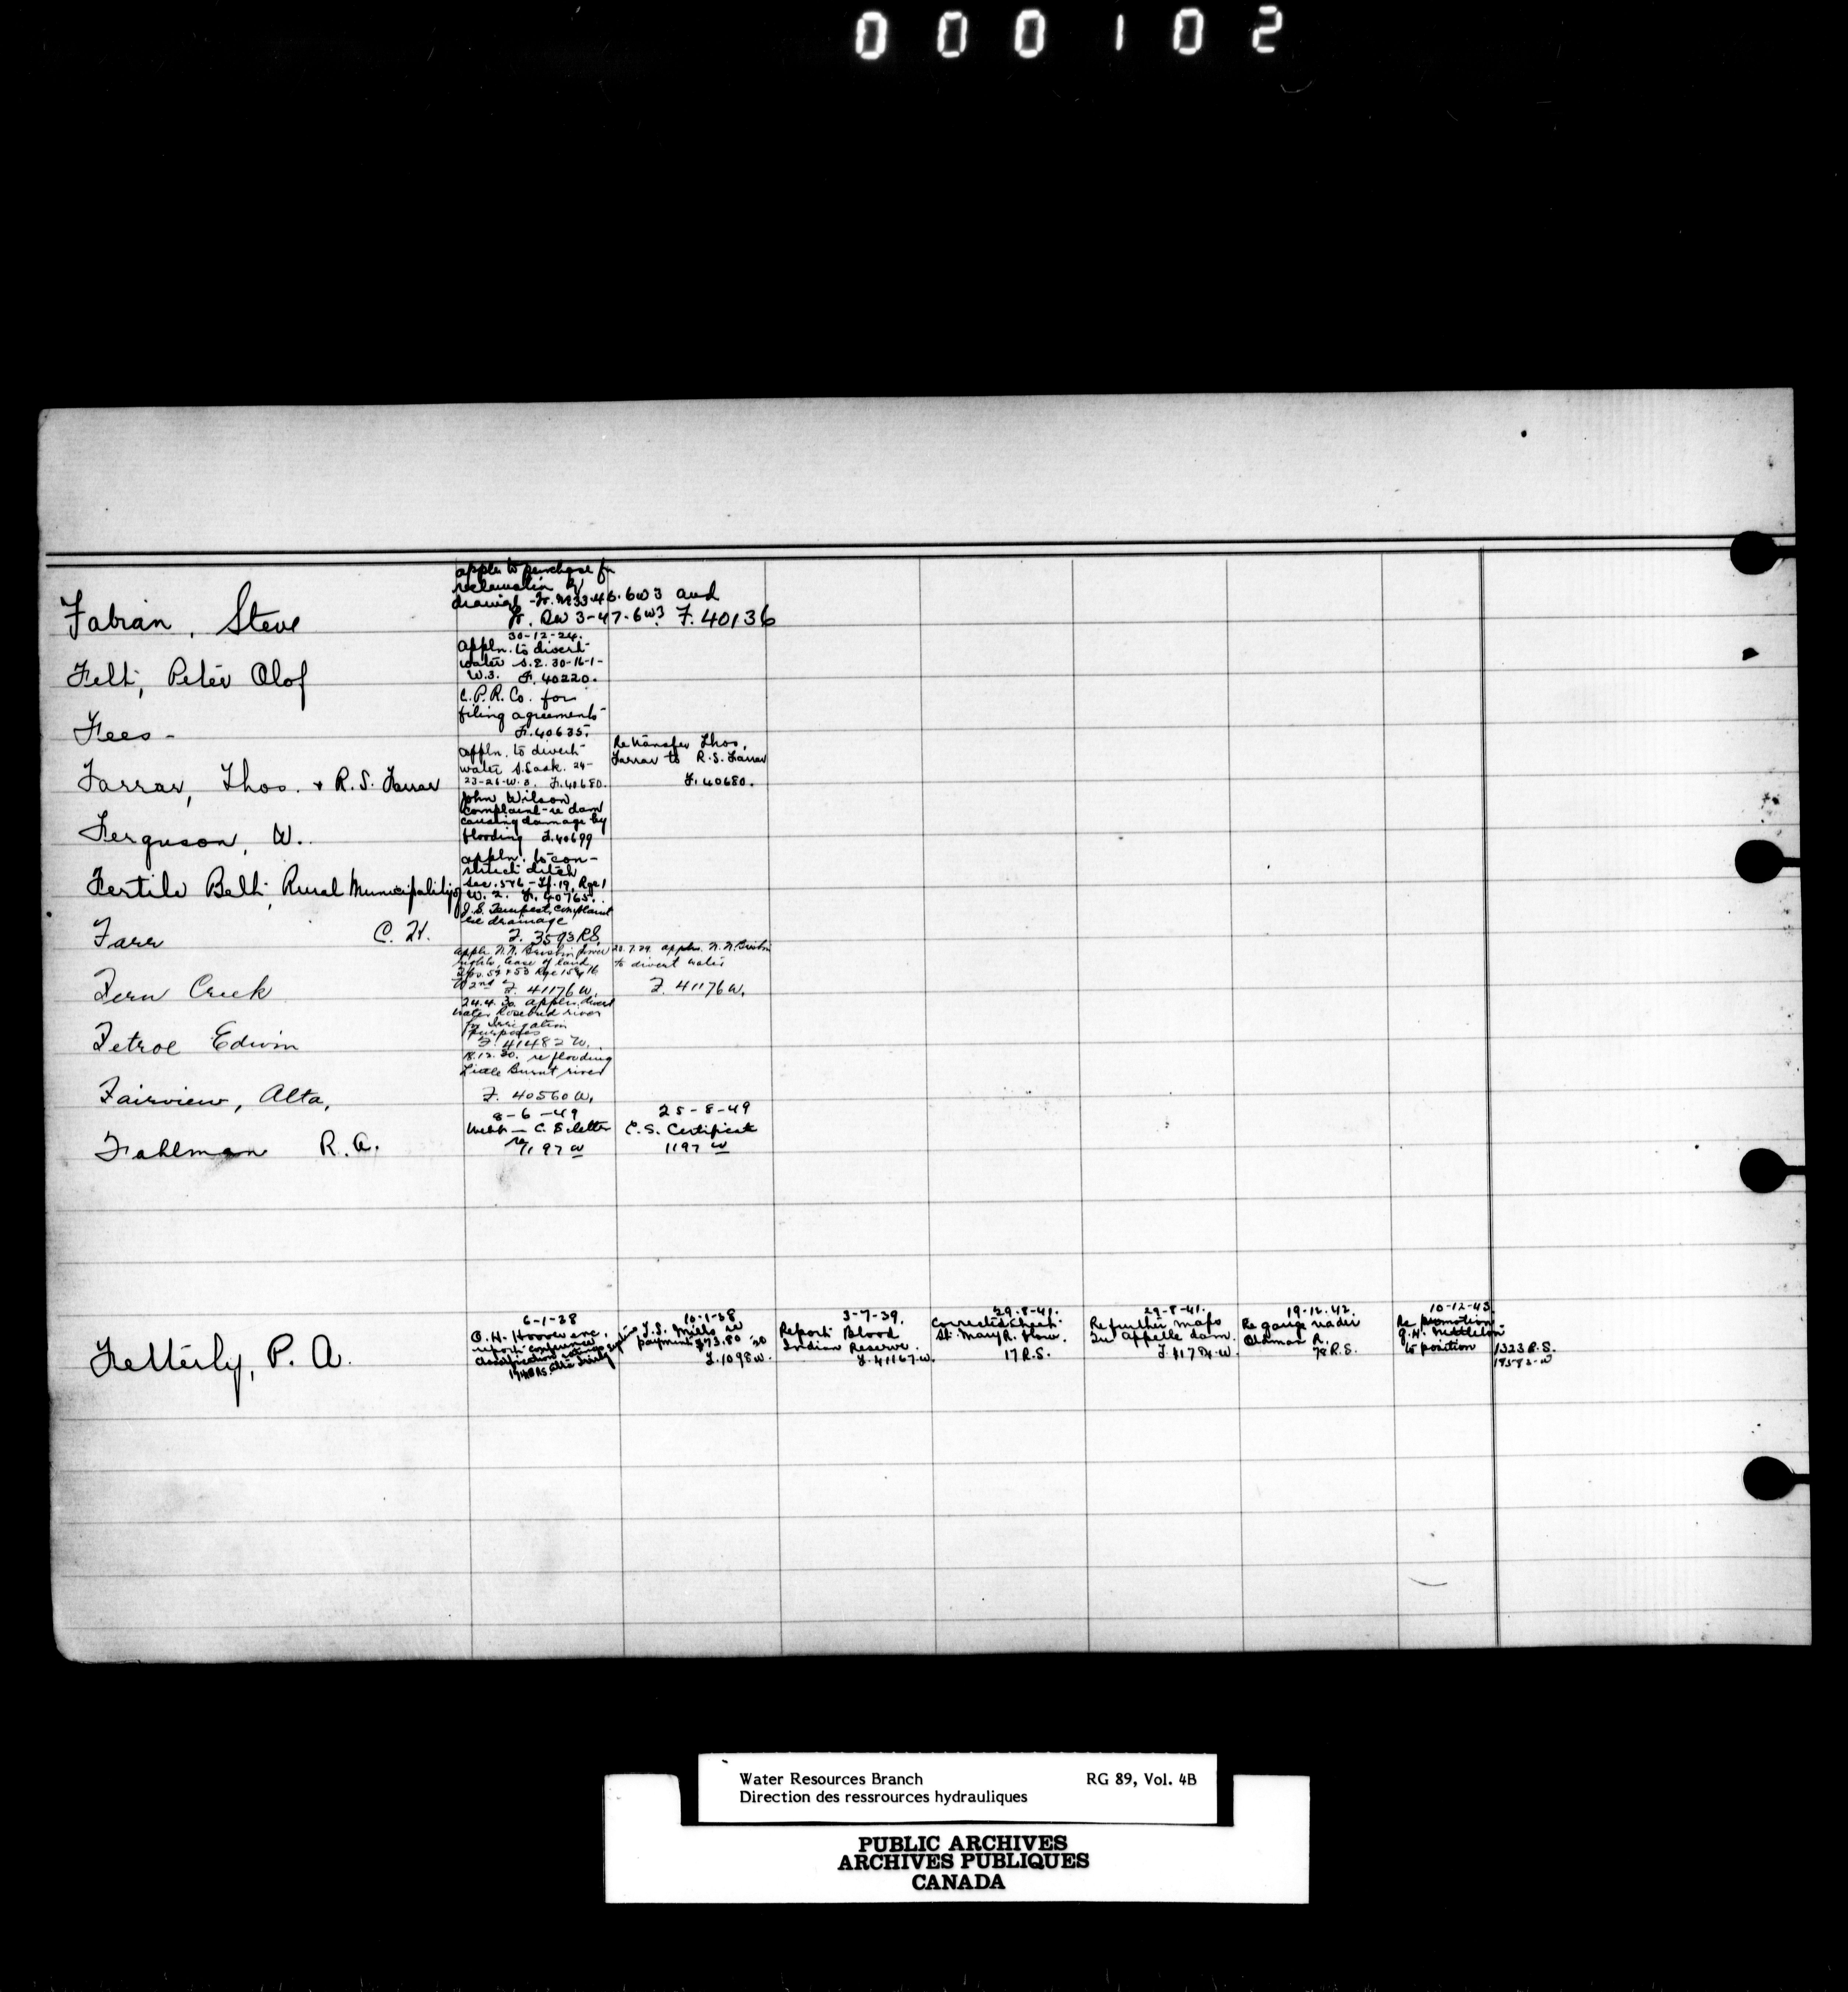 000102
Fabian, Steve
appln to purchase for
reclamation by
drainage - Fr. 33-46-6w3 and
Fr. SW 3-47-6w3 F. 40136
Felt, Peter Olof
30-12-24.
Appln. to divert
water S.E. 30-16-1-
W.3. F. 40220.
Fees -
C.P.R. Co. for
filing agreements
F. 40635.
Farrar, Thos. + R.S. Farrar
appln. to divert
water S. Sask. 24-
23-26-W.3. F. 40680.
Re transfer Thos.
Farrar to R.S. Farrar
F. 40680.
Ferguson, W.
John Wilson
Complaint re dam
causing damage by
flooding F. 40699
Fertile Belt, Rural Municipality of
appln. to con-
struct ditch
Sec. 5+6 - Tp. 19, Rge 1
W. 2. F. 40765.
Farr C. H.
J.S. Tempest, complaint
re drainage
F. 3593 RS.
Fern Creek
appln N.N. Brisbin power
rights, lease of land
Tps. 52 + 53 Rge 15 + 16
W 2nd F. 41176 W.
20.7.29. appln. N.N. Brisbin
to divert water
F. 41176 W.
Fetroe Edwin
24.4.30. appln. divert
water Rosebud river
for irrigation
purposes
F. 41482 W.
Fairview, Alta,
18.12.30. re flooding
Little Burnt river
F. 40560 W.
Fahlman R.A.
8-6-49
Webb - C.S. letter
re 1197 W
25-8-49
C.S. Certificate
1197 W
Fetterly, P. A.
6-1-38
O.H. Hoover enc.
report conference
classification
10-1-38
J.S. Mills re
payment $73.80
F. 1098 W.
3-7-39.
Report Blood
Indian Reserve.
F. 41167-W.
29-8-41.
Corrected sheet
St. Mary R. flow.
17 R.S.
29-8-41.
Re further maps
Qu'Appelle dam.
19-12-42.
Re gauge nadir
Oldman R.
78 R.S.
10-12-43.
Re promotion
G.H. Nettleton
to position 1323 R.S.
Water Resources Branch RG 89, Vol. 4B
Direction des ressrources hydrauliques
PUBLIC ARCHIVES
ARCHIVES PUBLIQUES
CANADA